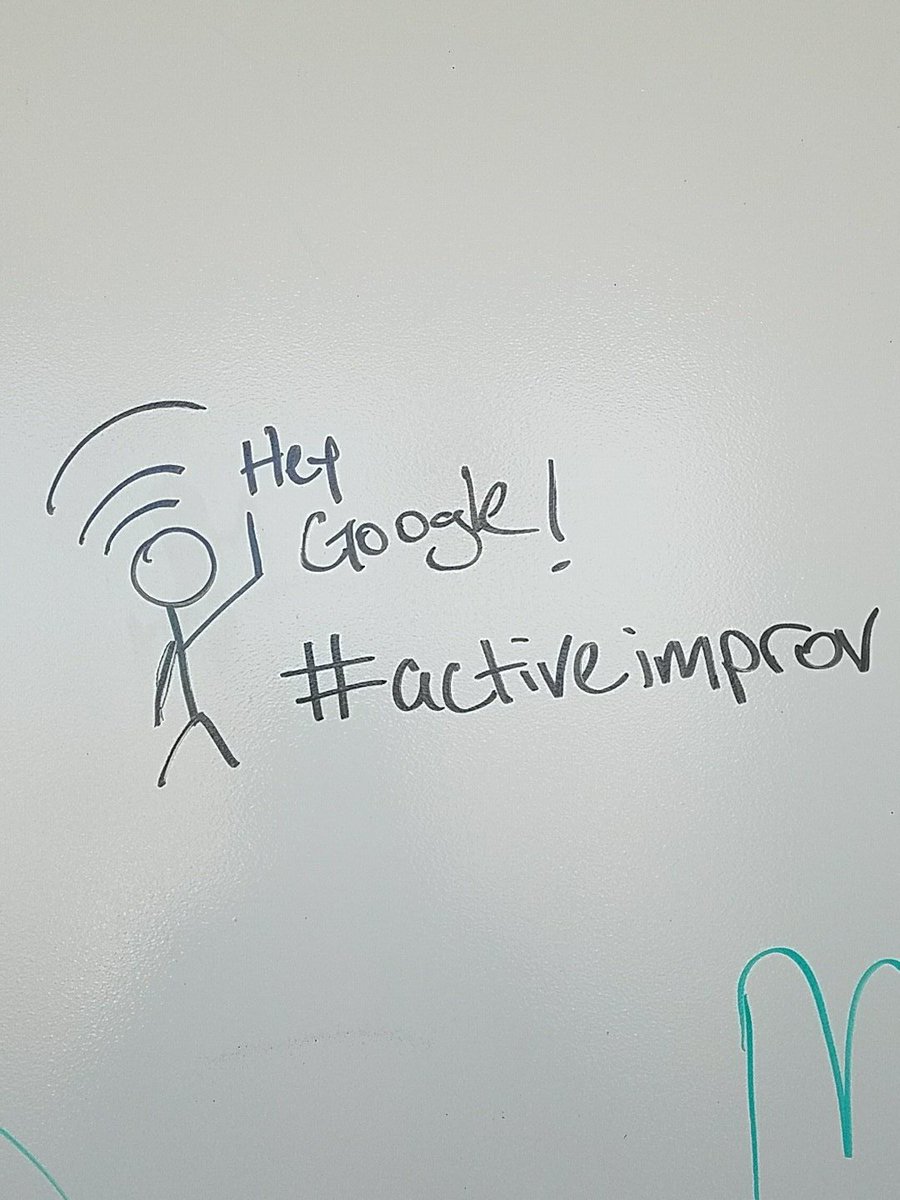 Hey
Google!
#activeimprov